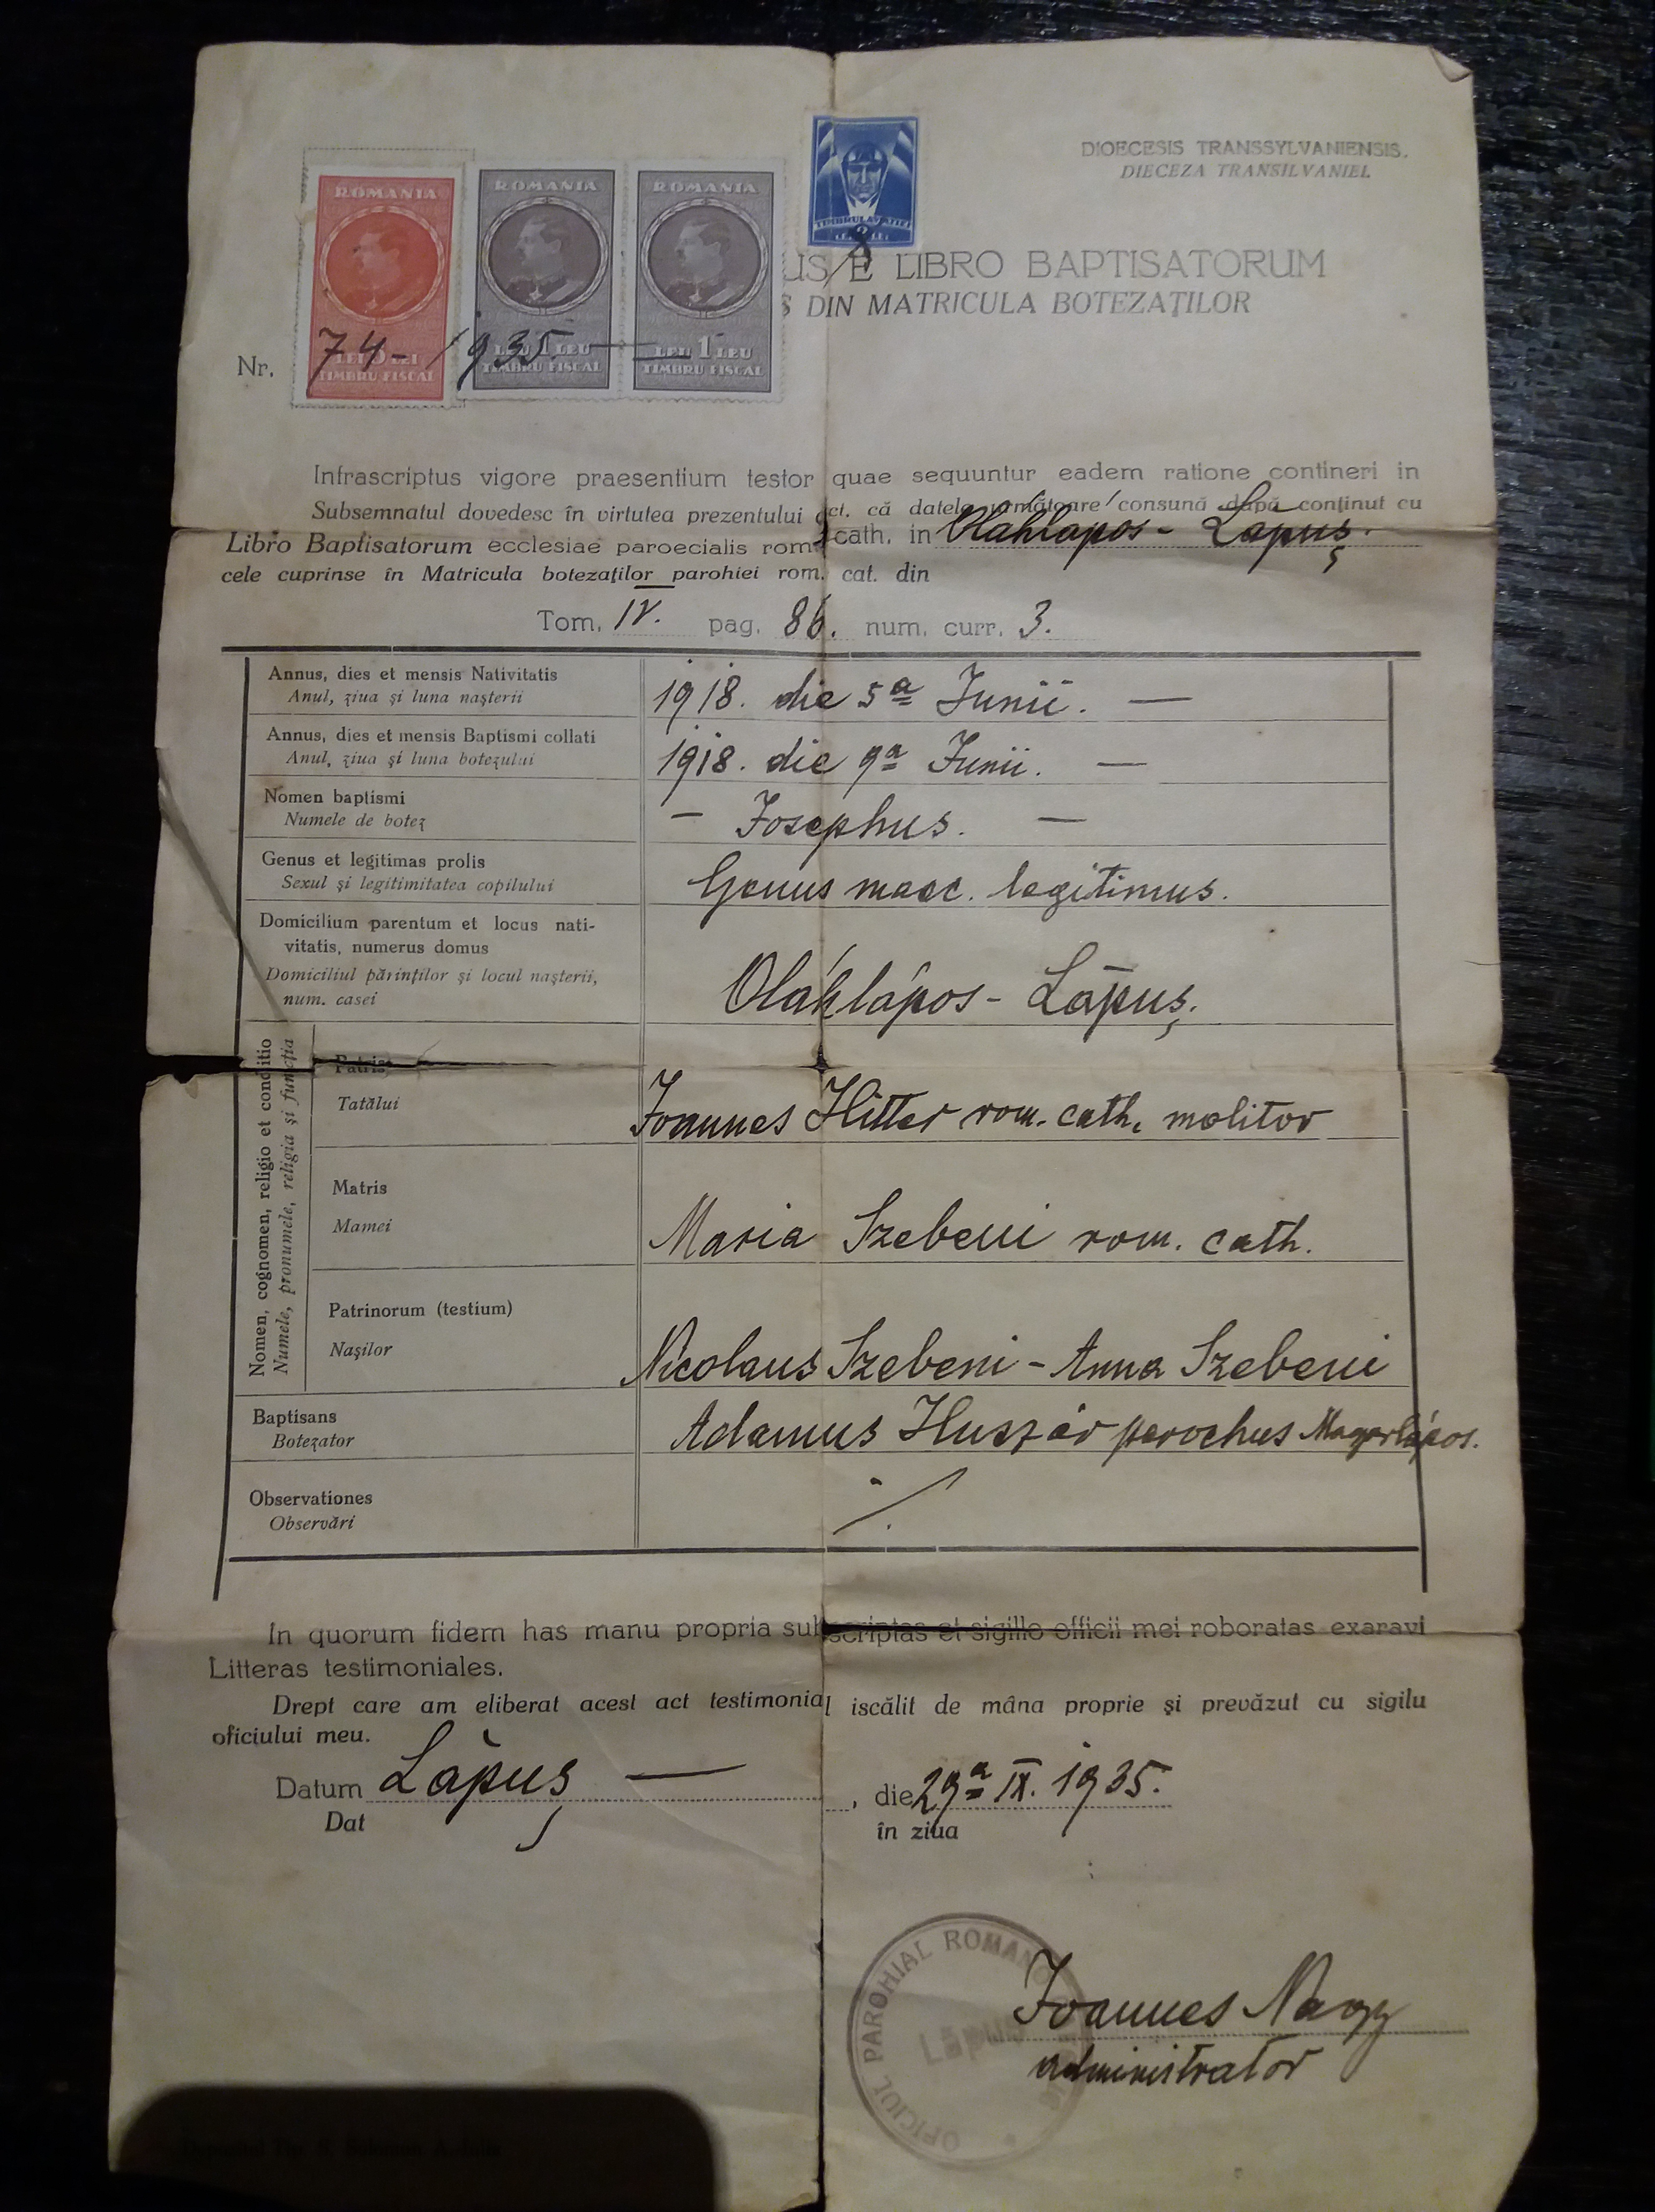 DIOECESIS TRANSSYLVANIENSIS.
DIECEZA TRANSILVANIEI.
ROMANIA
LEI 5 LEI
TIMBRU FISCAL
ROMANIA
LEU 1 LEU
TIMBRU FISCAL
ROMANIA
LEU 1 LEU
TIMBRU FISCAL
TIMBRUL AVIAȚIEI
US E LIBRO BAPTISATORUM
S DIN MATRICULA BOTEZAŢILOR
Nr. 74-/1935.—
Infrascriptus vigore praesentium testor quae sequuntur eadem ratione contineri in
Subsemnatul dovedesc în virtutea prezentului act. că datele următoare consună după conţinut cu
Libro Baptisatorum ecclesiae paroecialis rom. cath. in Oláhlápos - Lăpuș.
cele cuprinse în Matricula botezaţilor parohiei rom. cat. din
Tom. IV. pag. 86. num. curr. 3.
Annus, dies et mensis Nativitatis
Anul, ziua şi luna naşterii
1918. die 5a Junii. —
Annus, dies et mensis Baptismi collati
Anul, ziua şi luna botezului
1918. die 9a Junii. —
Nomen baptismi
Numele de botez
— Josephus. —
Genus et legitimas prolis
Sexul şi legitimitatea copilului
Genus masc. legitimus.
Domicilium parentum et locus nati-
vitatis, numerus domus
Domiciliul părinţilor şi locul naşterii,
num. casei
Oláhlápos - Lăpuș.
Nomen, cognomen, religio et conditio
Numele, pronumele, religia şi funcţia
Patris
Tatălui
Joannes Hitter rom. cath. molitor
Matris
Mamei
Maria Szebeni rom. cath.
Patrinorum (testium)
Naşilor
Nicolaus Szebeni - Anna Szebeni
Baptisans
Botezator
Adamus Huszár parochus Magyarlápos.
Observationes
Observări
./.
In quorum fidem has manu propria subscriptas et sigillo officii mei roboratas exaravi
Litteras testimoniales.
Drept care am eliberat acest act testimonial iscălit de mâna proprie şi prevăzut cu sigilu
oficiului meu.
Datum Lăpuș — , die 29a IX. 1935.
Dat în ziua
OFICIUL PAROHIAL ROMANO
Lăpuș
Joannes Nagy
administrator